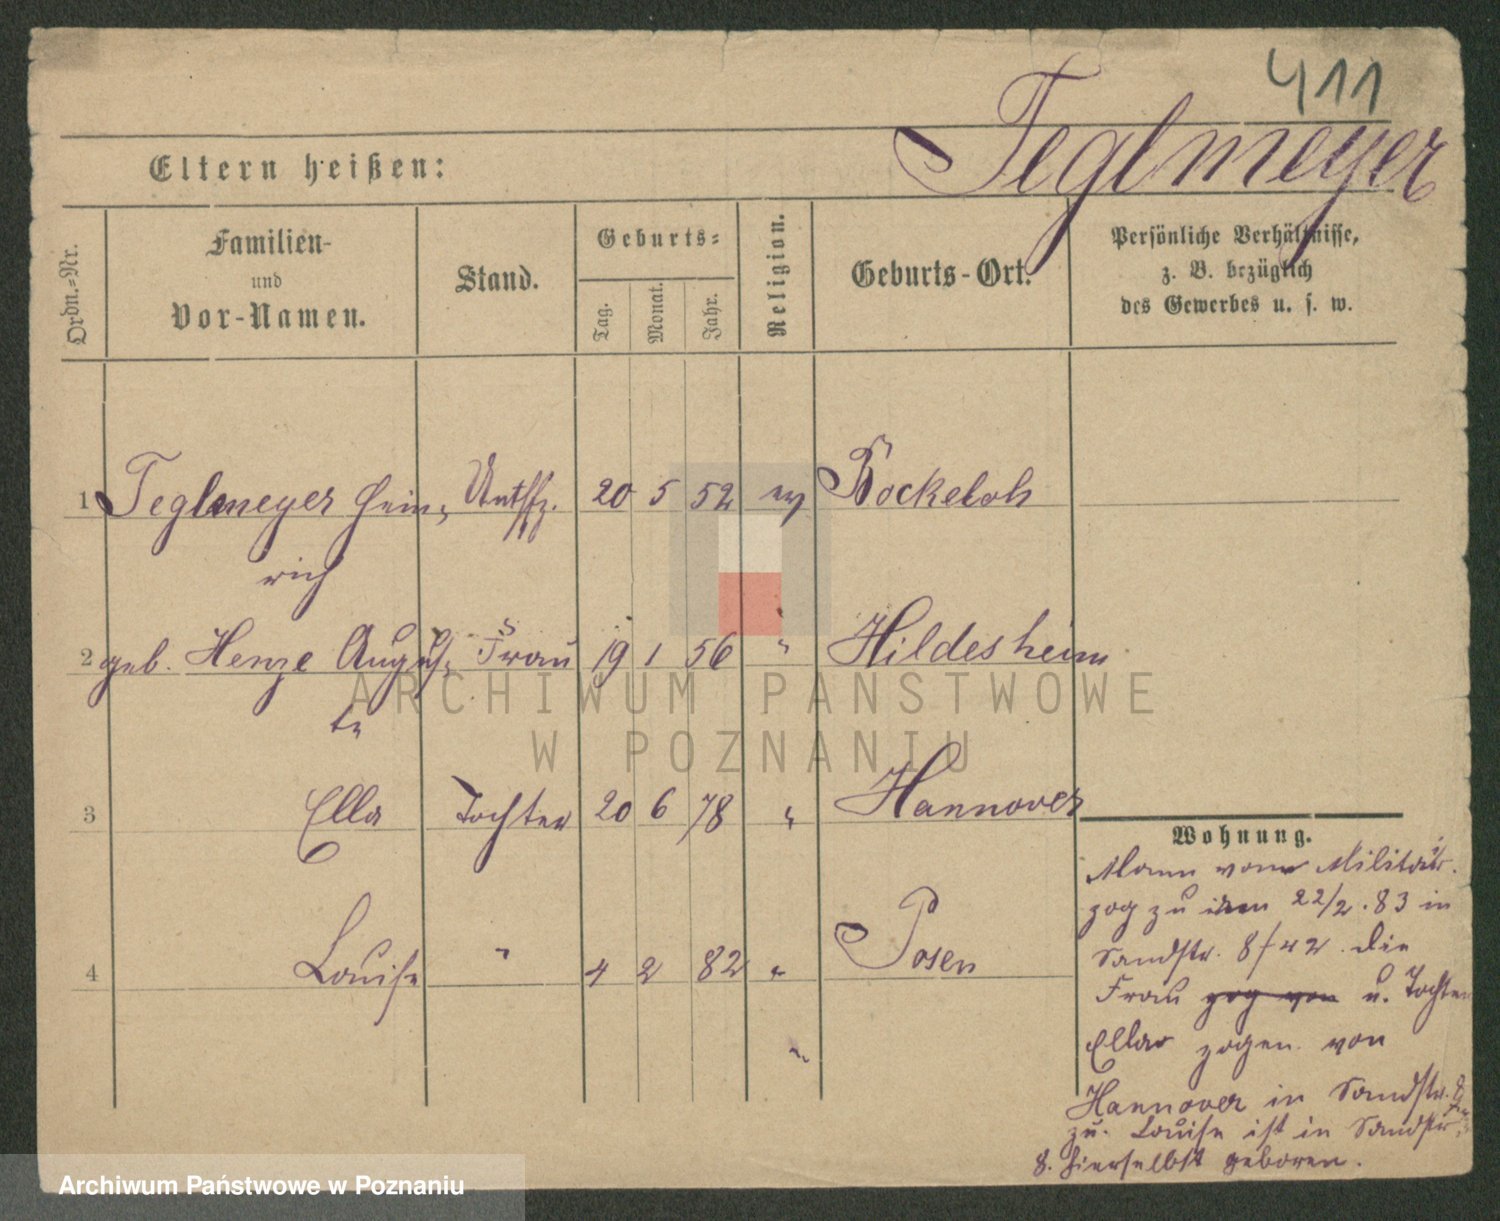 411
Teglmeyer
Eltern heißen:
Ordn.-Nr.
Familien-
und
Vor-Namen.
Stand.
Geburts-
Tag.
Monat.
Jahr.
Religion.
Geburts-Ort.
Persönliche Verhältnisse,
z. B. bezüglich
des Gewerbes u. s. w.
1 Teglmeyer Hein- Untffz. 20 5 52 ev Bockeloh
rich
2 geb. Henze Augus- Frau 19 1 56 " Hildesheim
te
ARCHIWUM PAŃSTWOWE
W POZNANIU
3 Ella Tochter 20 6 78 " Hannover
4 Louise " 4 2 82 " Posen
Wohnung.
Mann vom Militair.
zog zu 22/2. 83 in
Sandstr. 8 die
Frau zog von u. Tochter
Ella zogen von
Hannover in Sandstr. 8
zu. Louise ist in Sandstr.
8. hierselbst geboren.
Archiwum Państwowe w Poznaniu